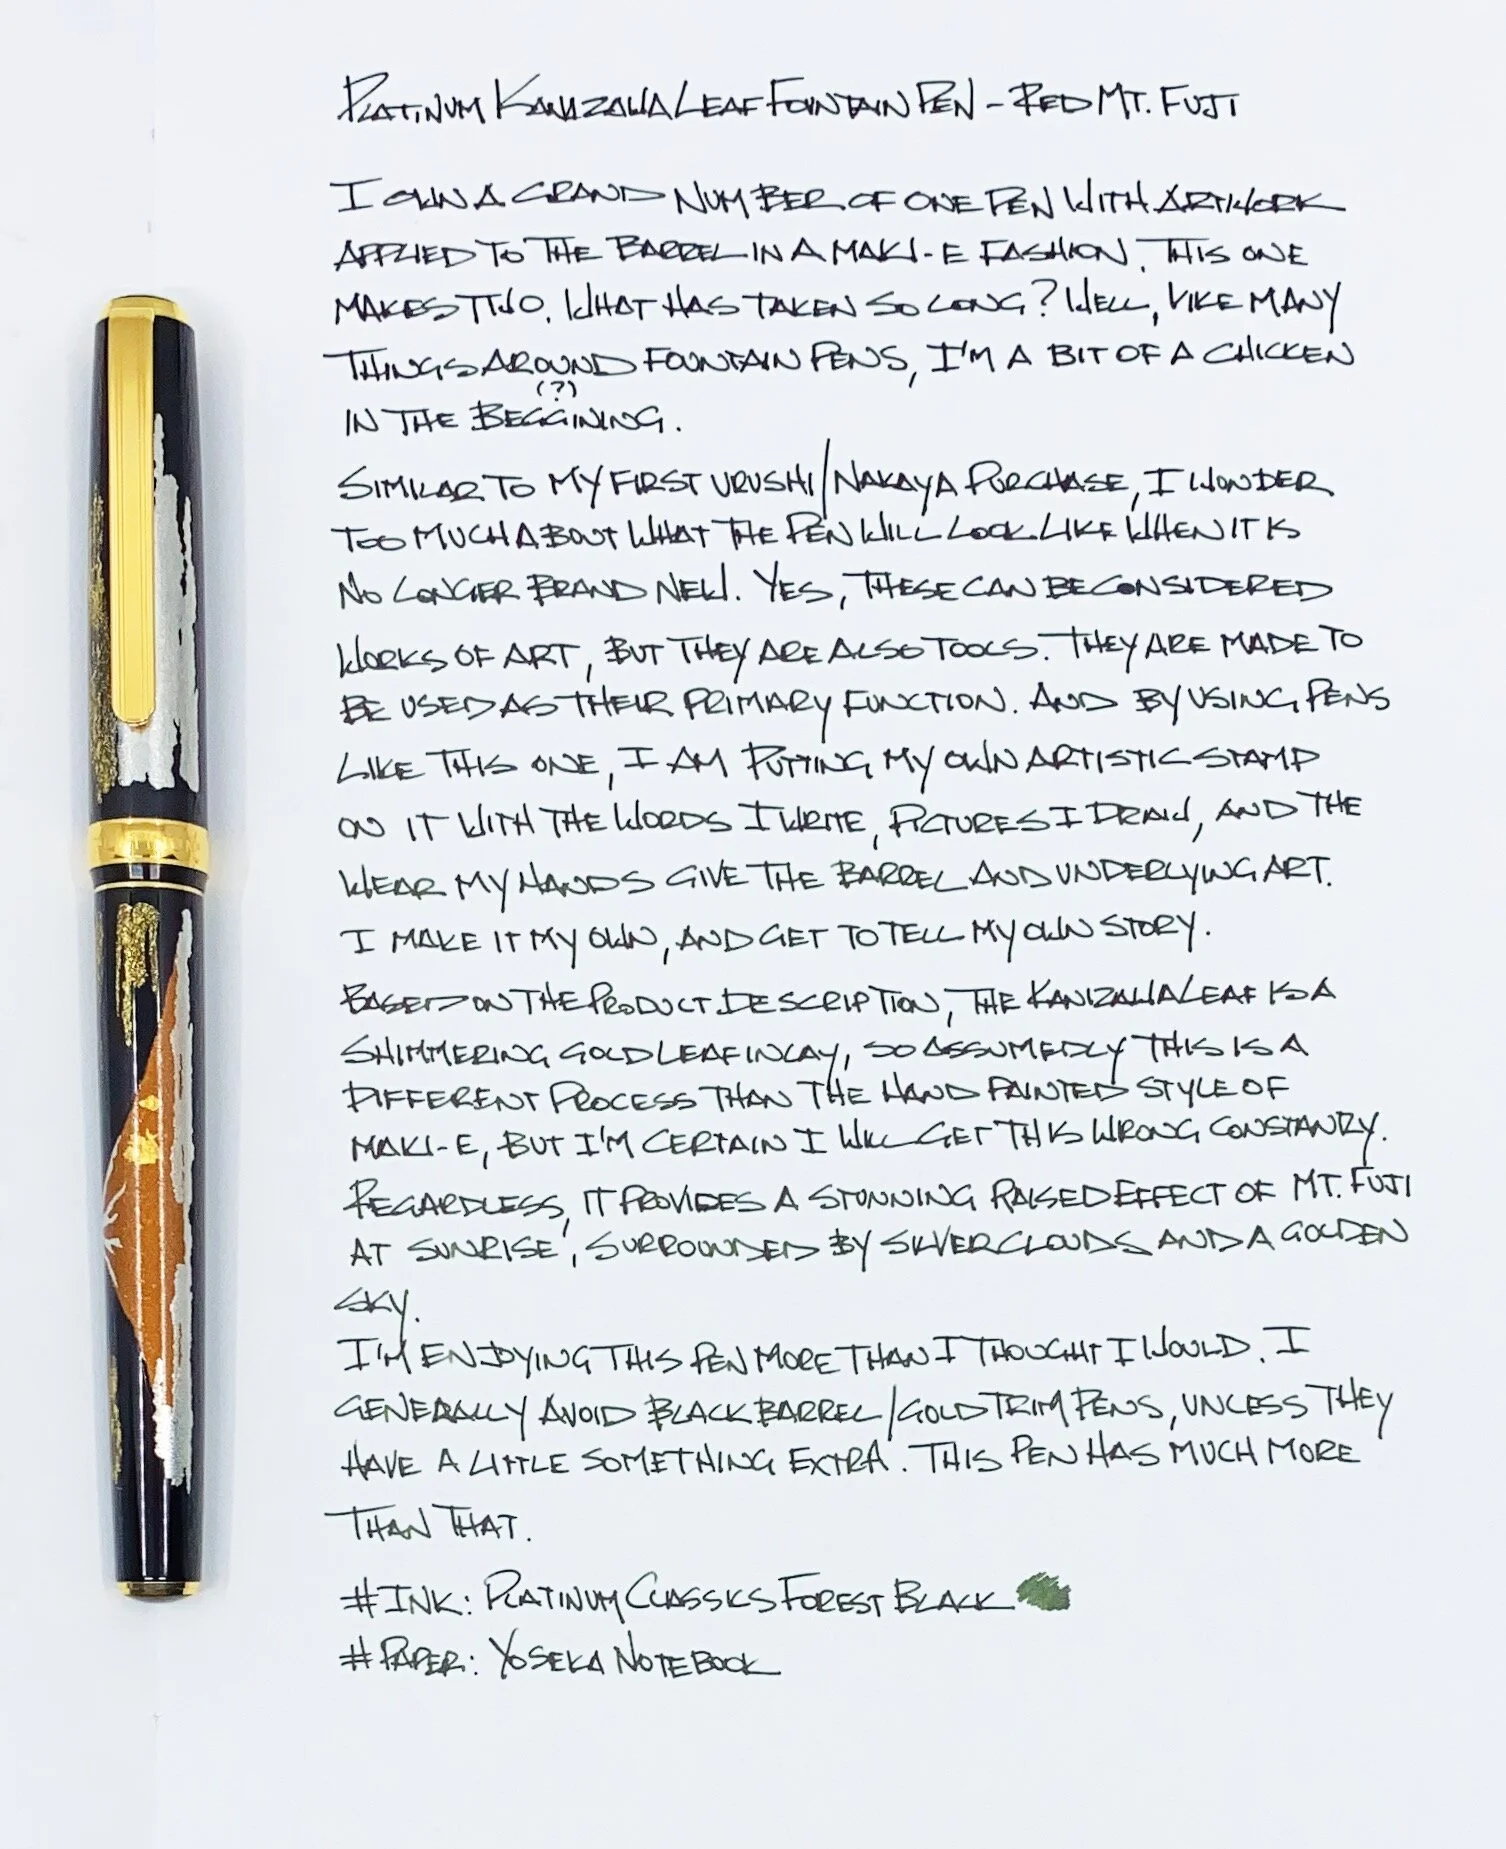 PLATINUM KANIZAWA LEAF FOUNTAIN PEN - RED MT. FUJI
I OWN A GRAND NUMBER OF ONE PEN WITH ARTWORK
APPLIED TO THE BARREL IN A MAKI-E FASHION. THIS ONE
MAKES TWO. WHAT HAS TAKEN SO LONG? WELL, LIKE MANY
THINGS AROUND FOUNTAIN PENS, I'M A BIT OF A CHICKEN
(?)
IN THE BEGGINING.
SIMILAR TO MY FIRST URUSHI/NAKAYA PURCHASE, I WONDER
TOO MUCH ABOUT WHAT THE PEN WILL LOOK LIKE WHEN IT IS
NO LONGER BRAND NEW. YES, THESE CAN BE CONSIDERED
WORKS OF ART, BUT THEY ARE ALSO TOOLS. THEY ARE MADE TO
BE USED AS THEIR PRIMARY FUNCTION. AND BY USING PENS
LIKE THIS ONE, I AM PUTTING MY OWN ARTISTIC STAMP
ON IT WITH THE WORDS I WRITE, PICTURES I DRAW, AND THE
WEAR MY HANDS GIVE THE BARREL AND UNDERLYING ART.
I MAKE IT MY OWN, AND GET TO TELL MY OWN STORY.
BASED ON THE PRODUCT DESCRIPTION, THE KANIZAWA LEAF IS A
SHIMMERING GOLD LEAF INLAY, SO ASSUMEDLY THIS IS A
DIFFERENT PROCESS THAN THE HAND PAINTED STYLE OF
MAKI-E, BUT I'M CERTAIN I WILL GET THIS WRONG CONSTANTLY.
REGARDLESS, IT PROVIDES A STUNNING RAISED EFFECT OF MT. FUJI
AT SUNRISE, SURROUNDED BY SILVER CLOUDS AND A GOLDEN
SKY.
I'M ENJOYING THIS PEN MORE THAN I THOUGHT I WOULD. I
GENERALLY AVOID BLACK BARREL/GOLD TRIM PENS, UNLESS THEY
HAVE A LITTLE SOMETHING EXTRA. THIS PEN HAS MUCH MORE
THAN THAT.
#INK: PLATINUM CLASSICS FOREST BLACK
#PAPER: YOSEKA NOTEBOOK